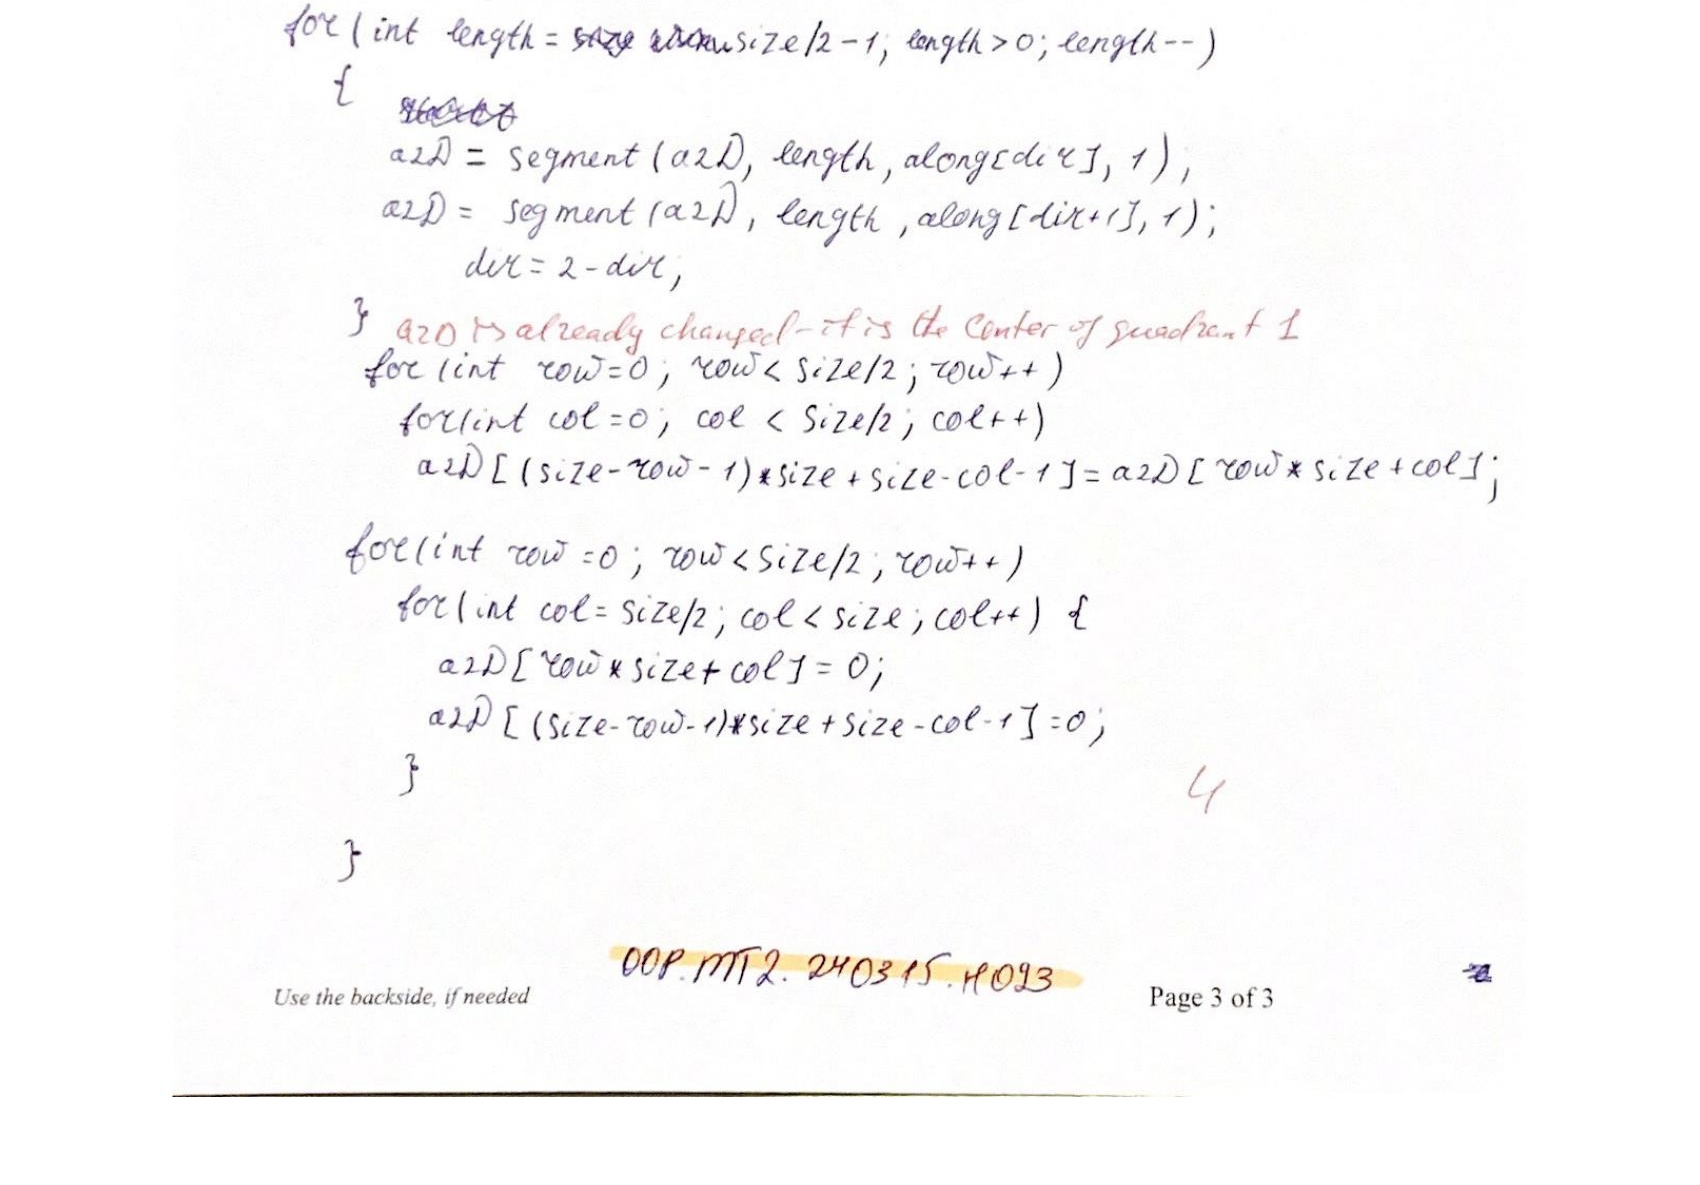 for (int length = size/2-1; length > 0; length--)
{
a2D = segment (a2D, length, along[dir], 1);
a2D = segment (a2D, length, along[dir+1], 1);
dir = 2 - dir;
} a2D is already changed - it is the center of quadrant 1
for (int row=0; row < size/2; row++)
for(int col=0; col < size/2; col++)
a2D[(size-row-1)*size+size-col-1]=a2D[row*size+col];
for(int row=0; row<size/2; row++)
for(int col=size/2; col<size; col++) {
a2D[row*size+col]=0;
a2D[(size-row-1)*size+size-col-1]=0;
}
4
}
OOP.MT2.240315.H093
Use the backside, if needed Page 3 of 3